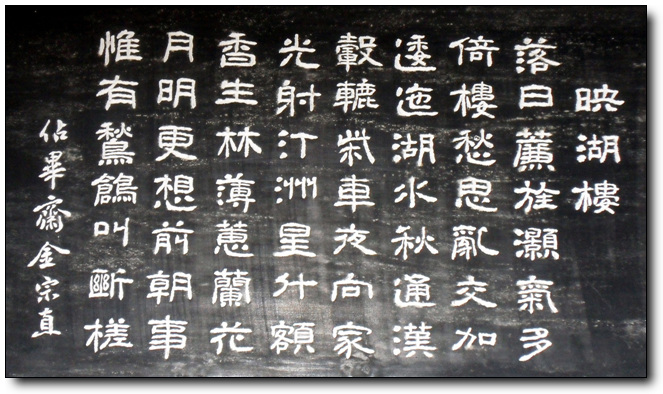 映湖樓
落日薕旌灝氣多
倚樓愁思亂交加
逶迤湖水秋通漢
轂轆柴車夜向家
光射汀洲星什額
香生林薄蕙蘭花
月明更想前朝事
惟有鶖鶬叫斷槎
佔畢齋金宗直